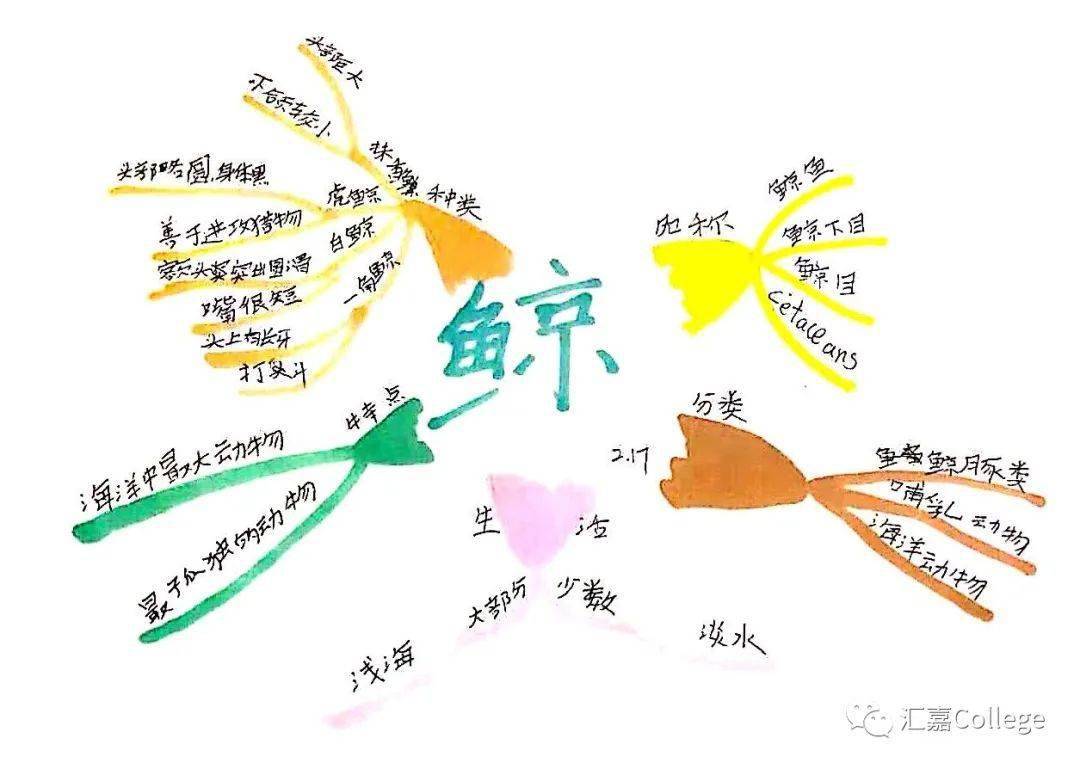 鲸
种类
抹香鲸
头部巨大
下颌较小
虎鲸
头部略圆,身体黑
善于进攻猎物
白鲸
额头突出圆滑
嘴很短
一角鲸
头上有长牙
打架
昵称
鲸鱼
鲸下目
鲸目
Cetaceans
分类
2.17
鲸豚类
哺乳动物
海洋动物
特点
海洋中最大动物
最孤独的动物
生活
大部分
浅海
少数
淡水
汇嘉College